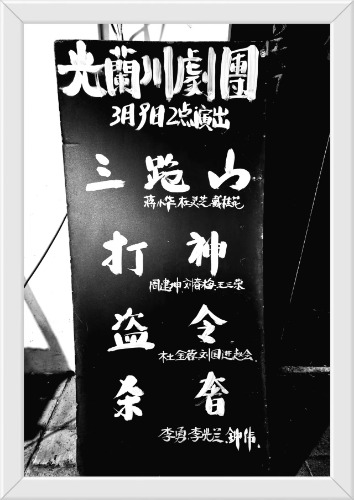 光蘭川劇團
3月9日2点演出
三跑山
蒋小华.杜灵芝.戴桂苑
打神
周建坤.刘春梅.王三荣
盗令
杜金蓉.刘国进.赵会
杀奢
李勇.李光兰.鈡伟.